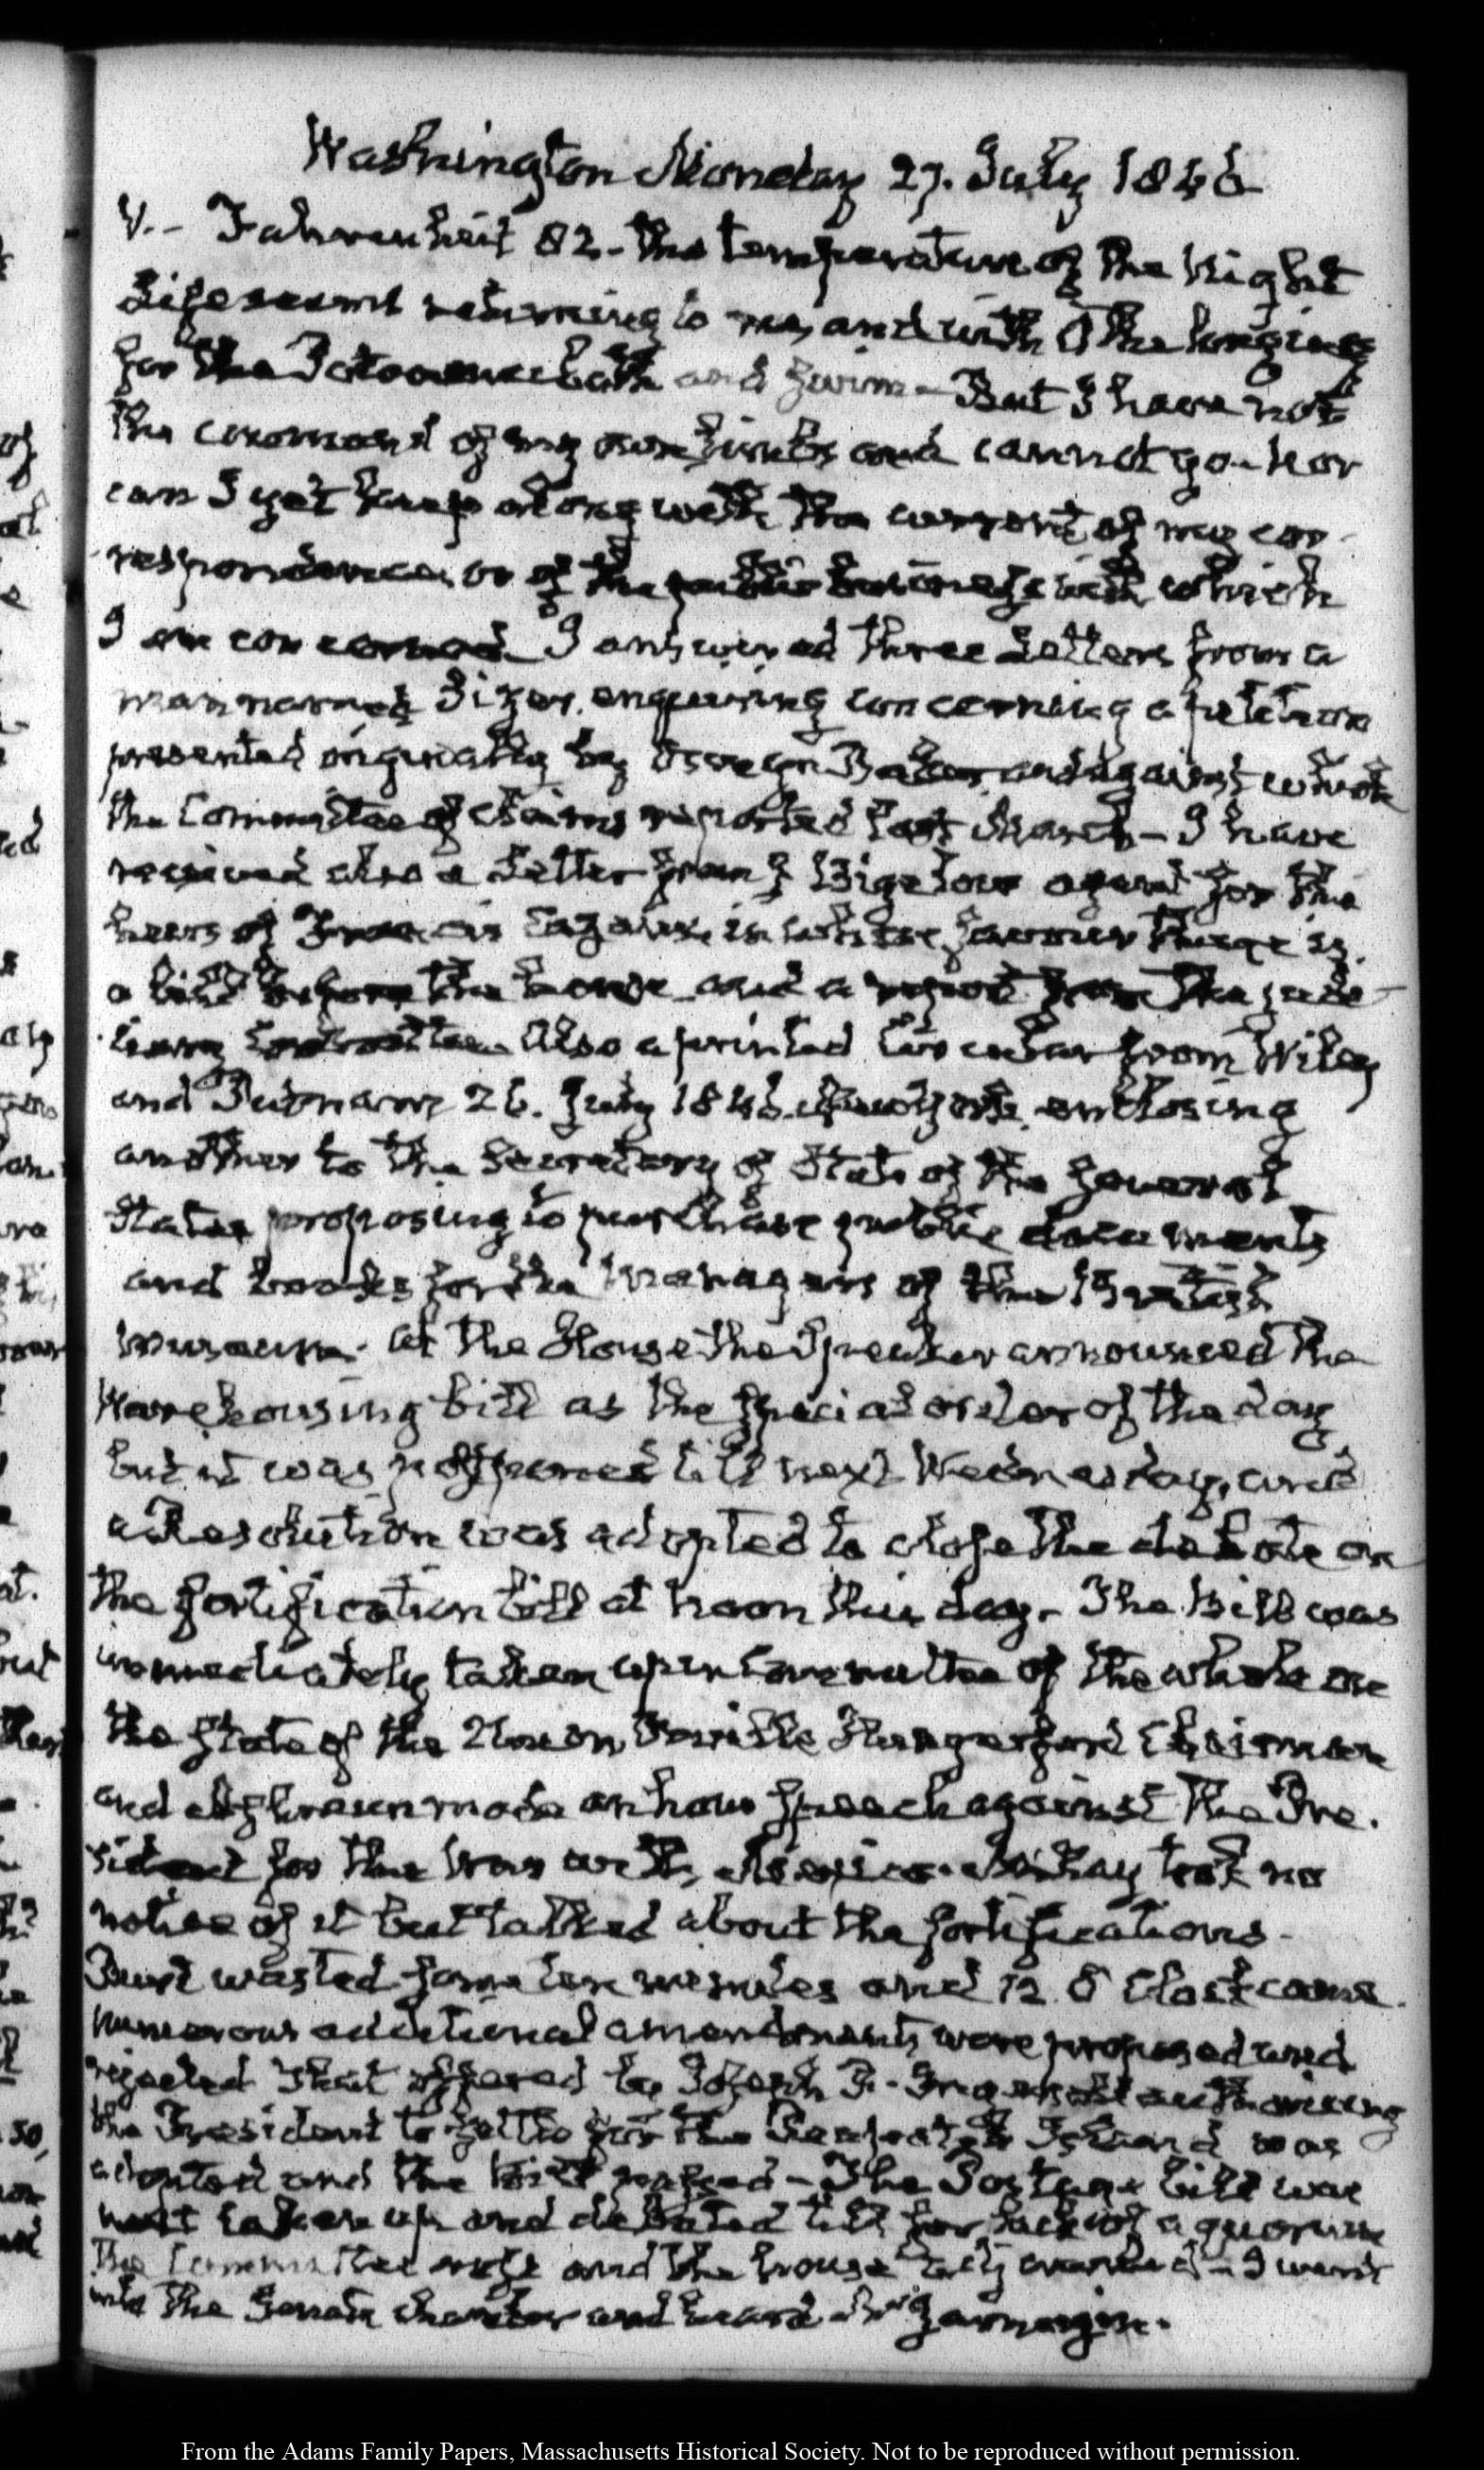 Washington Monday 27. July 1846
V.- Fahrenheit 82. the temperature of the Night
returning to me, and with it the longings
for the Potomac bath and swim - But I have not
the command of my own limbs and cannot go. Nor
can I yet keep along with the current of my cor-
respondence, or of the public business with which
I am concerned. I answered three Letters from a
man named enquiring concerning a petition
presented originally by and against which
the Committee of Claims reported last March - I have
received also a Letter from Bigelow agent for the
heirs of in whose favour there is
a bill before the house and a report from the judi-
ciary Committee. Also a printed Circular from Wiley
and Putnam 26. July 1846. enclosing
another to the Secretary of State of the several
States proposing to purchase public documents
and books for the Managers of the British
Museum. At the House the Speaker announced the
Warehousing bill as the special order of the day
but it was postponed till next Wednesday, and
a Resolution was adopted to close the debate on
the fortification bill at noon this day. The Bill was
immediately taken up in Committee of the whole on
the state of the Union, Orville Hungerford Chairman
and made an hour speech against the Pre-
sident for the War with Mexico. took no
notice of it but talked about the fortifications.
wasted some ten minutes and 12 O'Clock came.
numerous additional amendments were proposed and
rejected that offered by Joseph R. Ingersoll authorising
the President to settle for the Pea patch Island was
adopted and the bill passed - The Postage bill was
next taken up and debated till for lack of a quorum
the Committee rose and the house adjourned - I went
into the Senate chamber and heard Jarnagin.